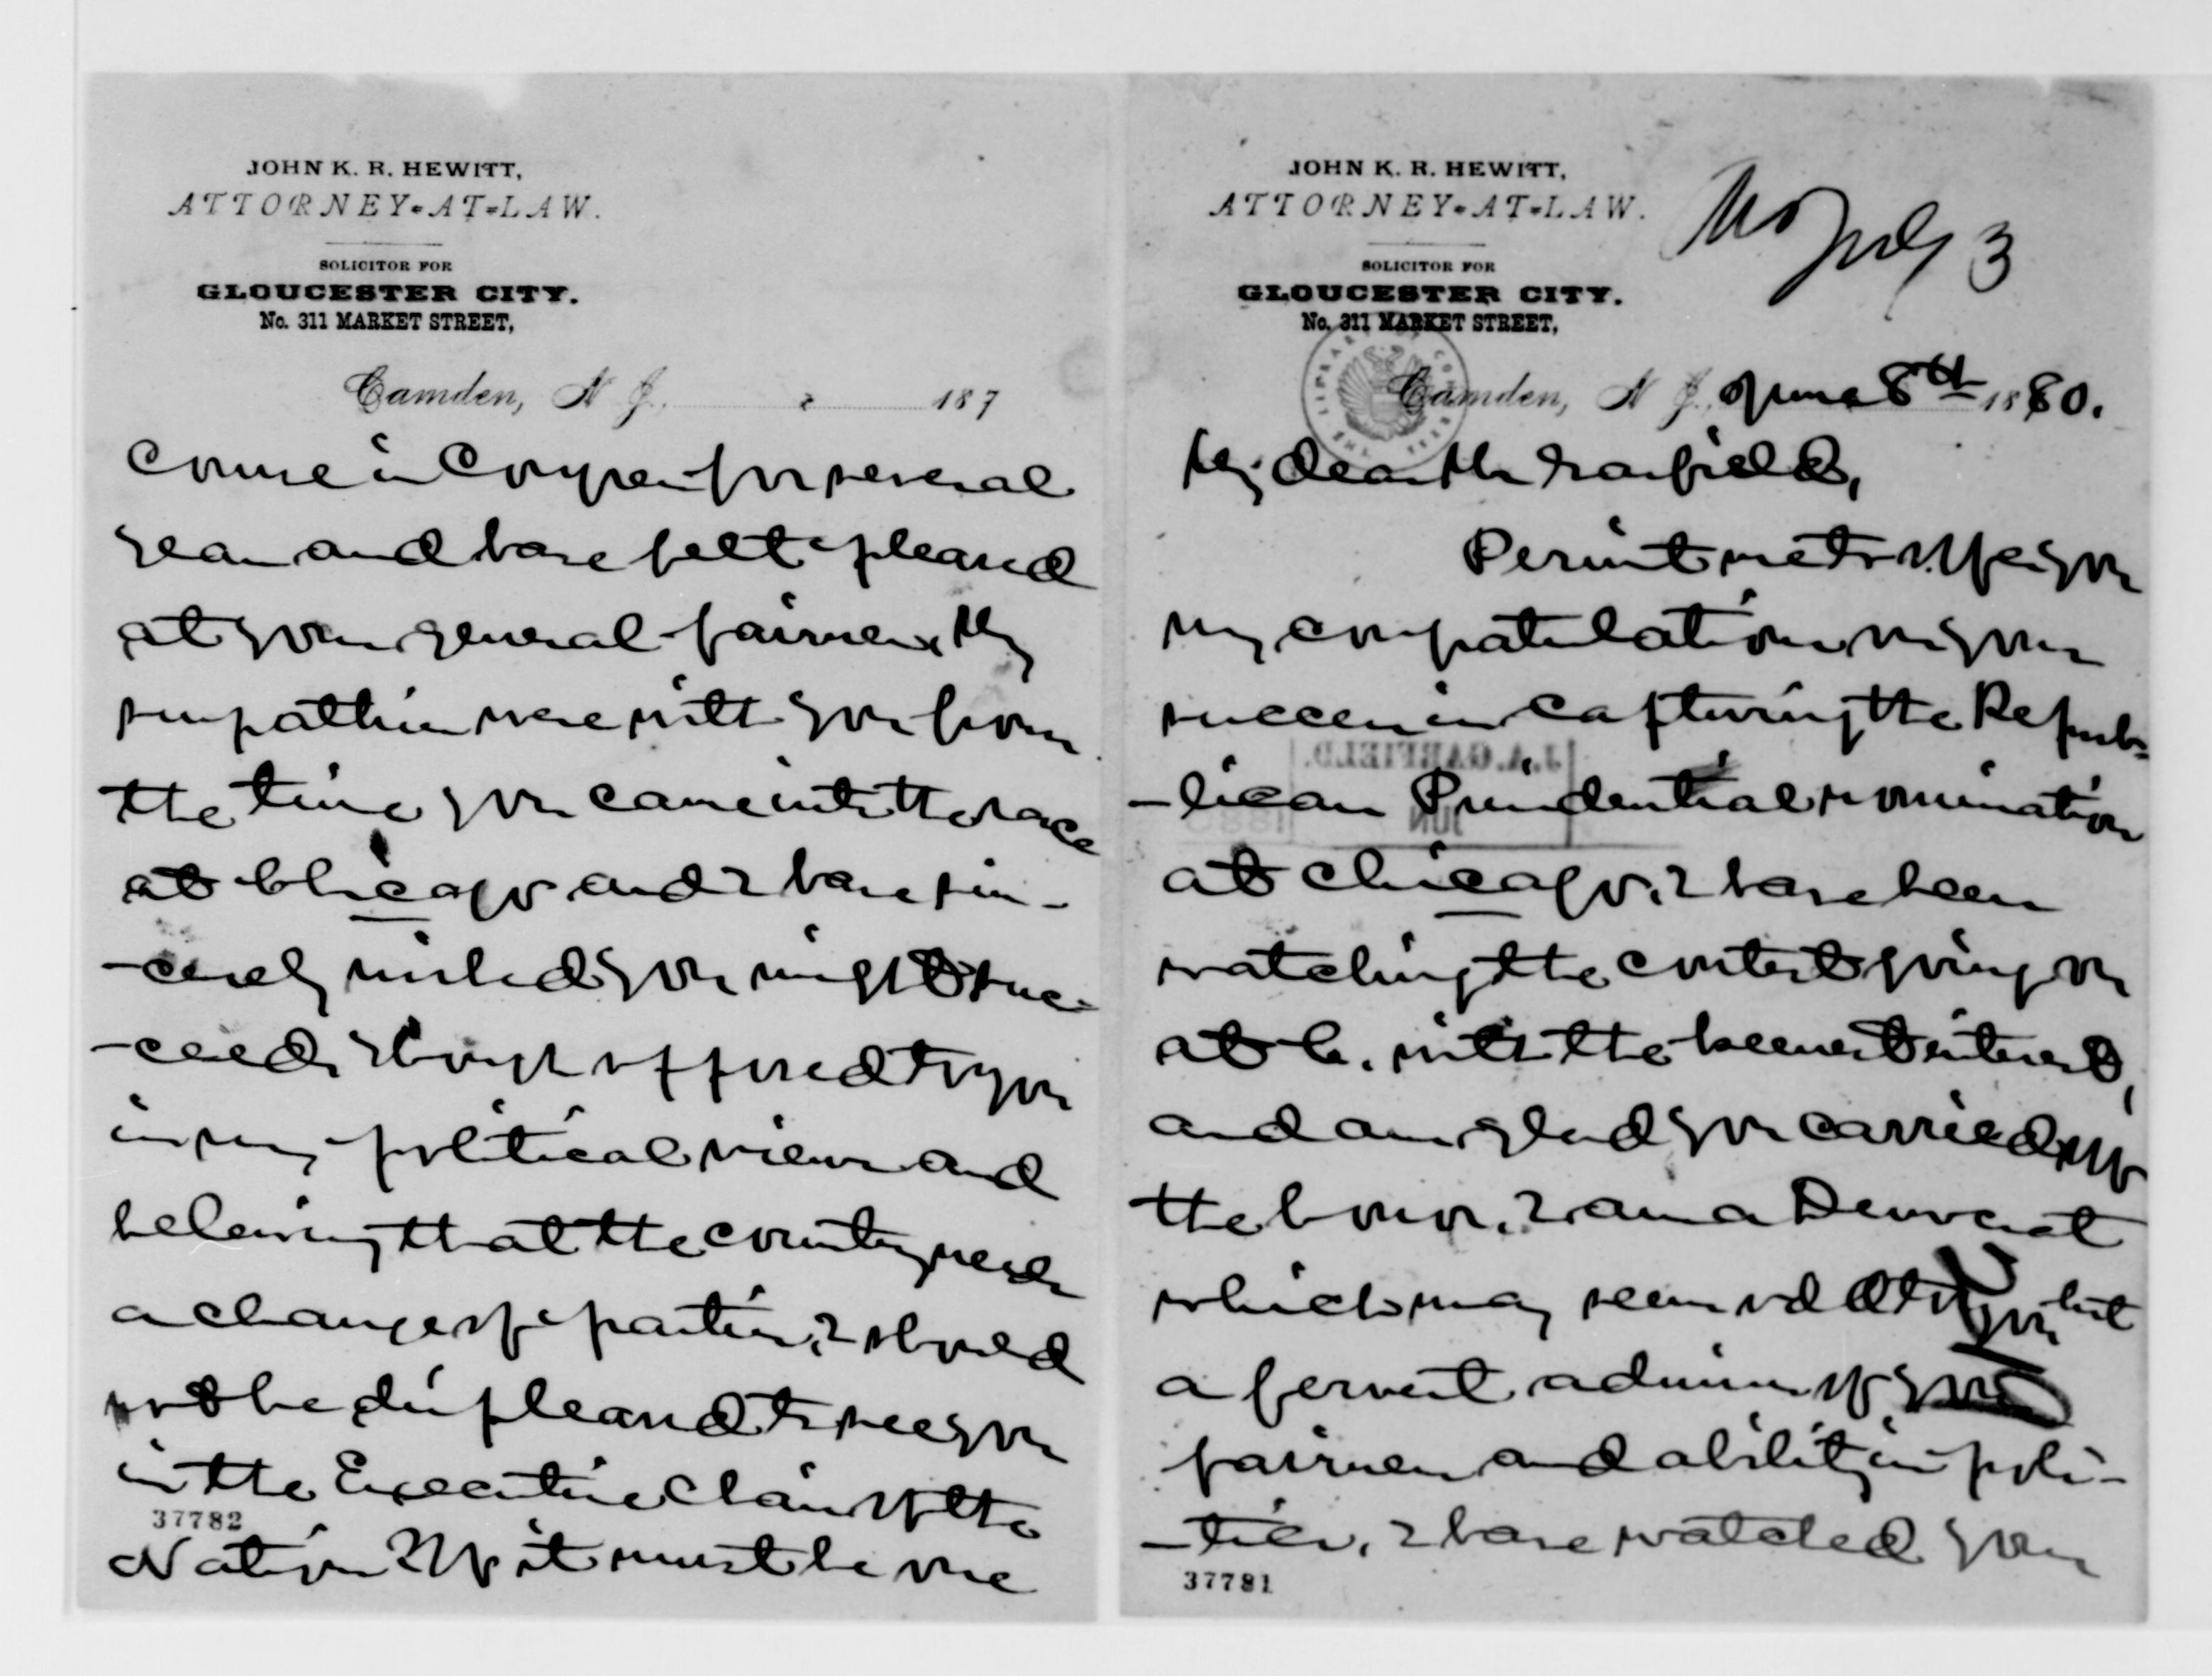 JOHN K. R. HEWITT,
ATTORNEY-AT-LAW.
SOLICITOR FOR
GLOUCESTER CITY.
No. 311 MARKET STREET,
Camden, N. J., June 8th 1880.
July 3
My dear Mr Garfield,
Permit me to offer you
my congratulations on your
success in capturing the Repub-
-lican Presidential nomination
at Chicago. I have been
watching the contest going on
at C. with the keenest interest,
and am glad you carried off
the honor. I am a Democrat
which may seem odd to you, but
a fervent admirer of your
fairness and ability in poli-
-tics. I have watched your
37781
J. A. GARFIELD.
JUN
1880
JOHN K. R. HEWITT,
ATTORNEY-AT-LAW.
SOLICITOR FOR
GLOUCESTER CITY.
No. 311 MARKET STREET,
Camden, N. J., 187
course in Congress for several
years and have felt pleased
at your general fairness. My
sympathies were with you from
the time you came into the race
at Chicago and I have sin-
-cerely wished you might suc-
-ceed. Though opposed to you
in my political views and
believing that the country needs
a change of parties, I should
not be displeased to see you
in the Executive Chair of the
Nation. If it must be one
37782